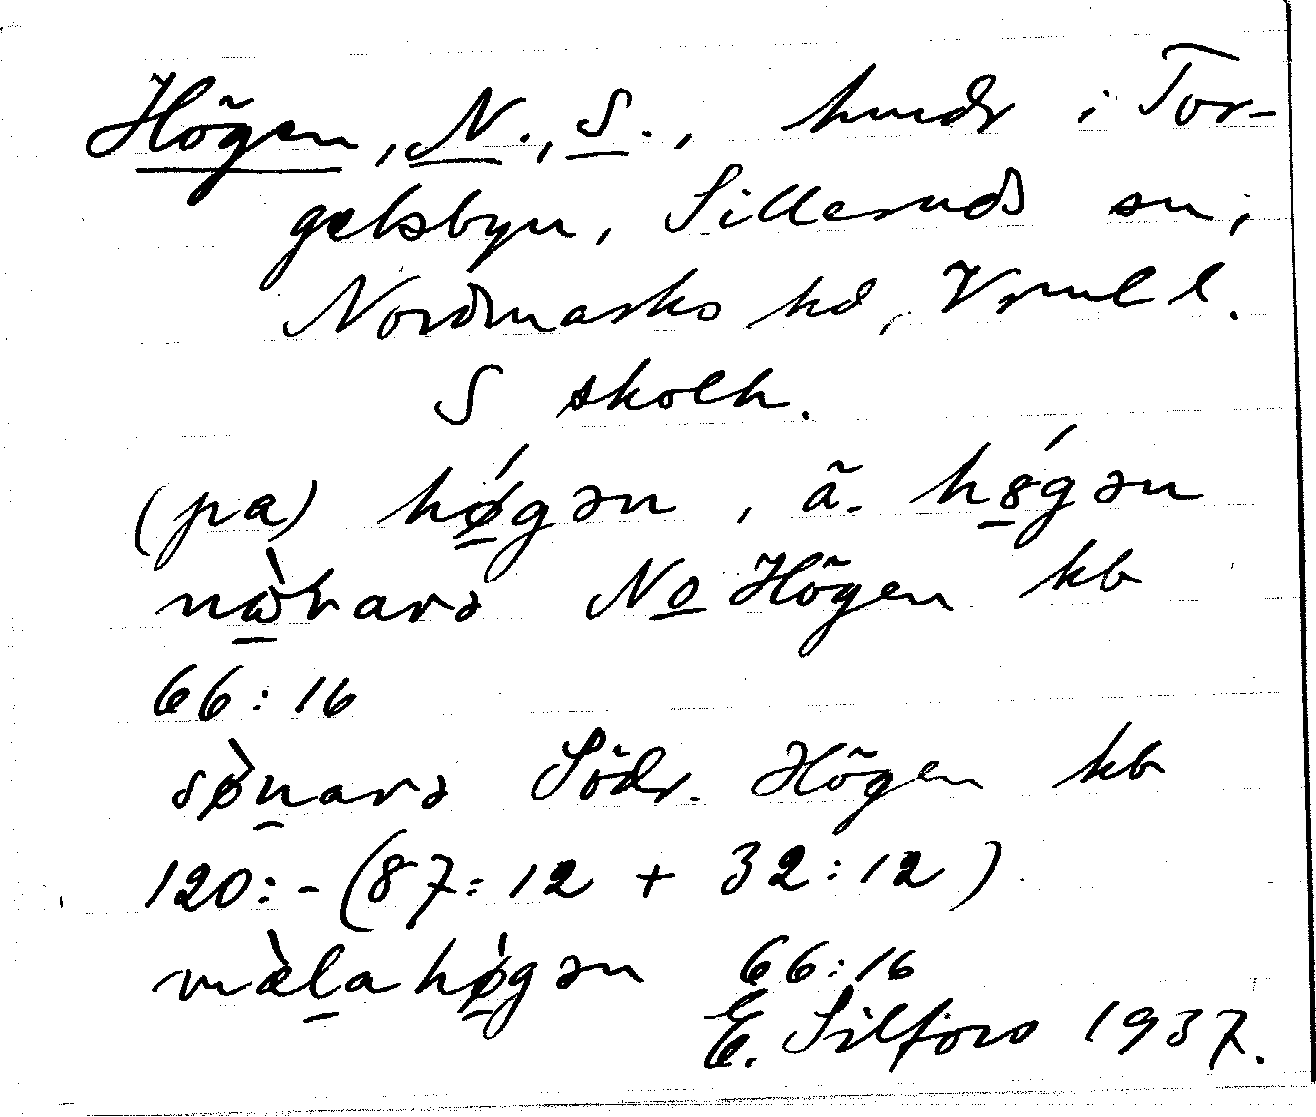 Högen, N., S., hmdr i Tor-
gelsbyn, Silleruds sn,
Nordmarks hd, Vrml l.
S skolh.
(pa) hǿgən, ä. hǵən
nὼṙarə No Högen kb
66:16
sø̀narə Södr. Högen kb
120:- (87:12 + 32:12)
mæ̀lahøgən 66:16
E. Silfors 1937.